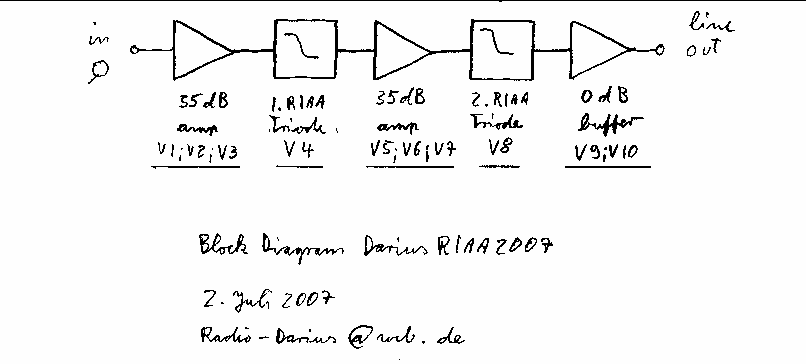 in
line
out
35 dB
amp
V1;V2;V3
1. RIAA
Triode.
V4
35 dB
amp
V5;V6;V7
2. RIAA
Triode
V8
0 dB
buffer
V9;V10
Block Diagram Darius RIAA 2007
2. Juli 2007
Radio-Darius@web.de